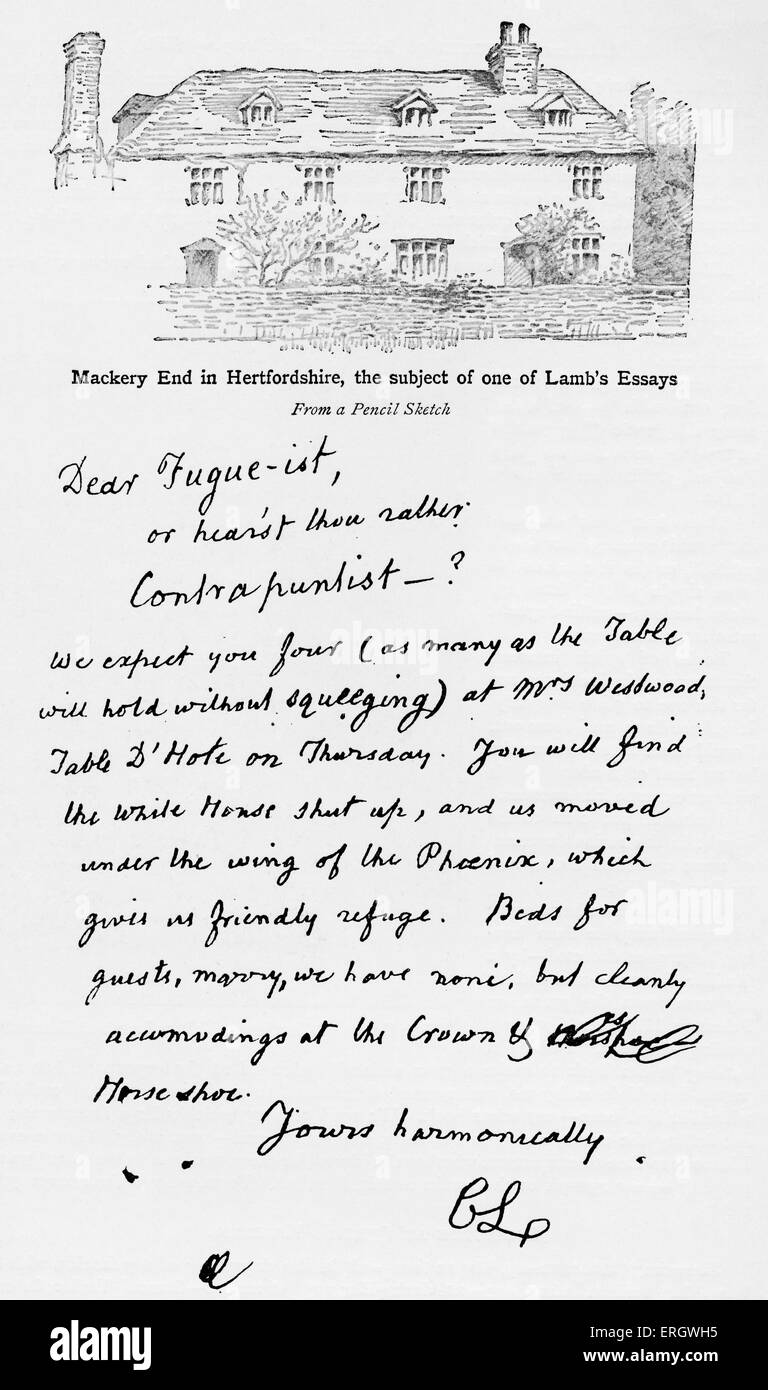 Mackery End in Hertfordshire, the subject of one of Lamb's Essays
From a Pencil Sketch
Dear Fugue-ist,
or hear'st thou rather
Contrapuntist—?
We expect you four (as many as the Table
will hold without squeeging) at Mrs Westwood,
Table D'Hote on Thursday. You will find
the White House shut up, and us moved
under the wing of the Phœnix, which
gives us friendly refuge. Beds for
guests, marry, we have none, but cleanly
accomodings at the Crown &
Horse shoe.
Yours harmonically
CL
alamy
Image ID: ERGWH5
www.alamy.com